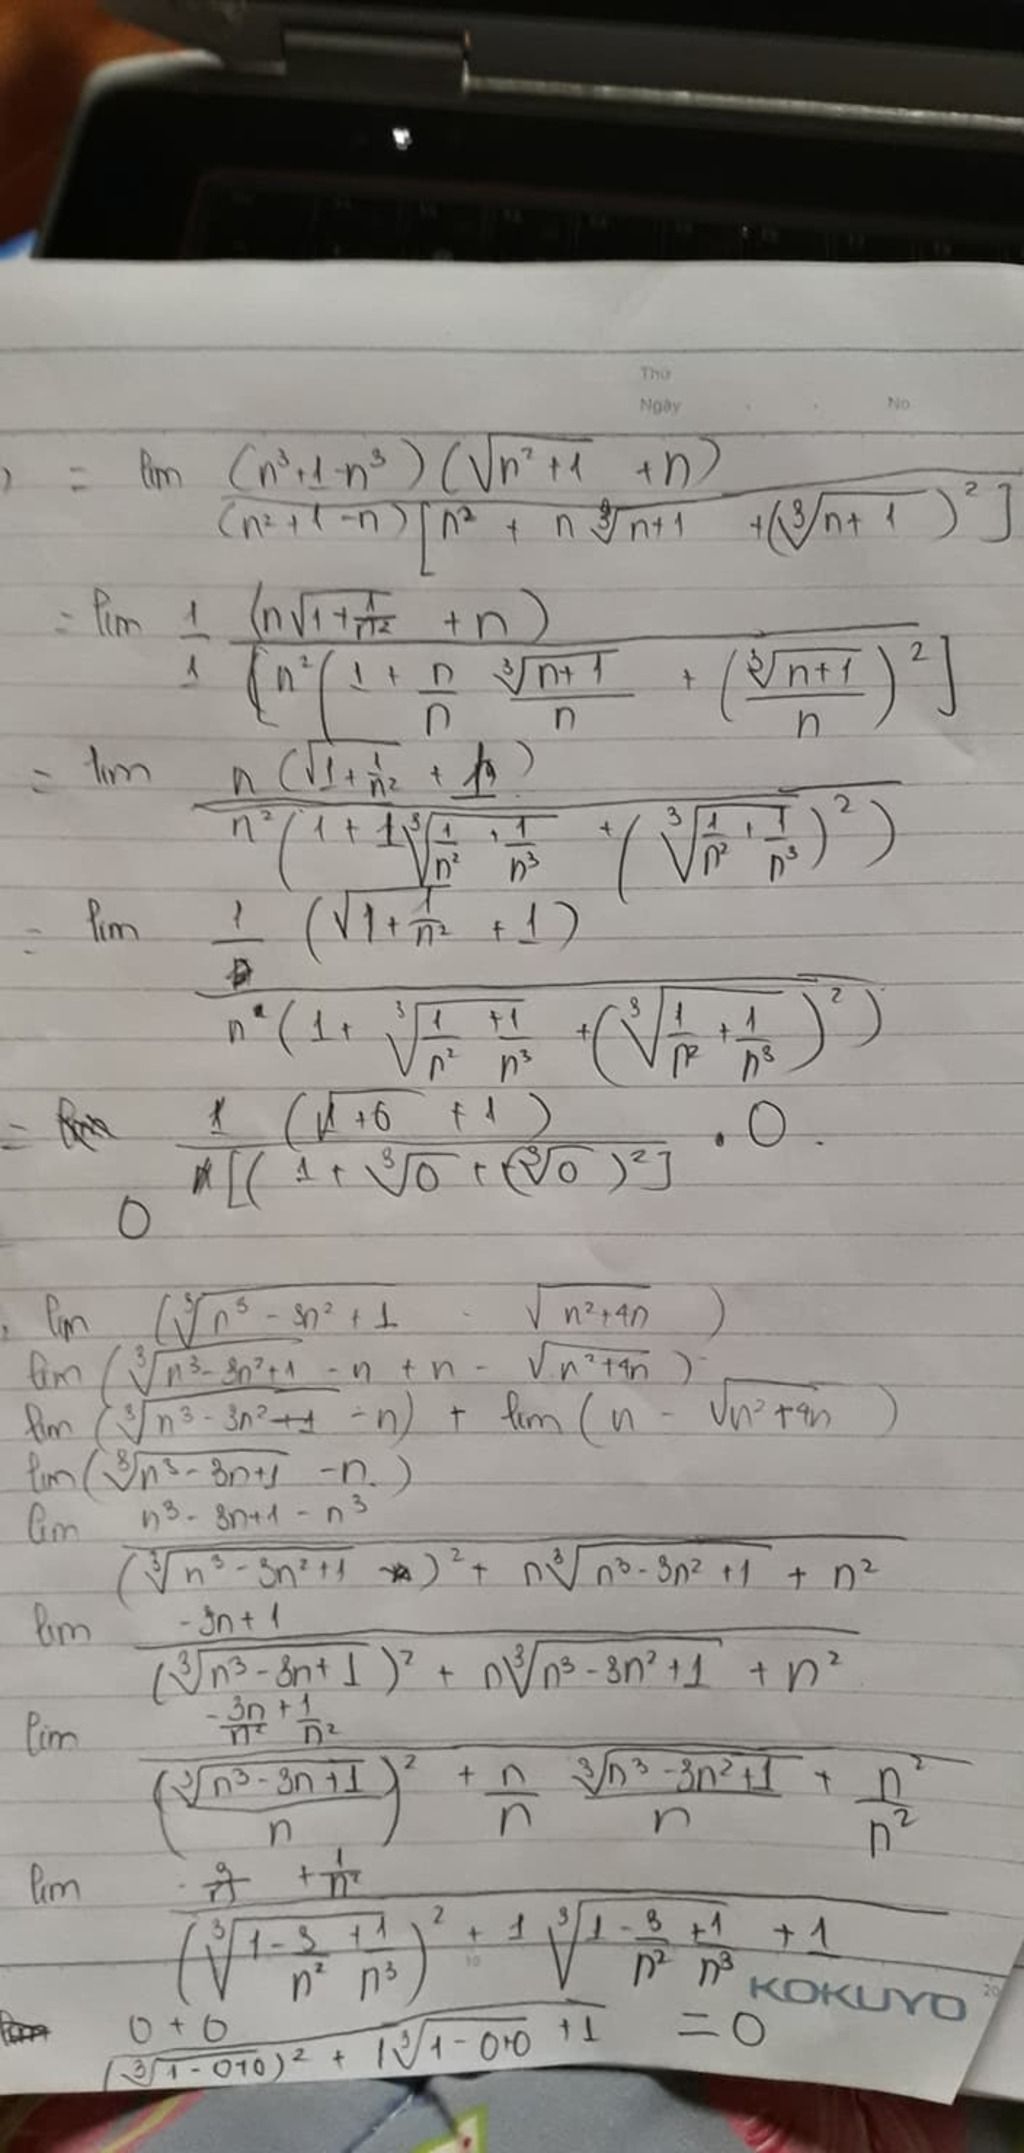 Thứ
Ngày . . No
) = lim (n³+1-n³)(√(n²+1) + n) / (n²+1-n)[n² + n ∛(n+1) + (∛(n+1))²]
= lim 1/1 (n√(1+1/n²) + n) / [n²(1 + n/n ∛(n+1)/n + (∛(n+1)/n)²]
= lim n(√(1+1/n²) + 1) / n²(1 + 1∛(1/n² + 1/n³) + (∛(1/n² + 1/n³))²)
= lim 1 (√(1+1/n²) + 1) / n(1 + ∛(1/n² + 1/n³) + (∛(1/n² + 1/n³))²)
= 1 (√(1+0) + 1) / [(1 + ∛0 + (∛0)²] . 0.
0
, lim (∛(n³ - 3n² + 1) - √(n²+4n))
lim (∛(n³ - 3n² + 1) - n + n - √(n²+4n))
lim (∛(n³ - 3n² + 1) - n) + lim (n - √(n²+4n))
lim (∛(n³ - 3n + 1) - n.)
lim n³ - 3n + 1 - n³ / (∛(n³ - 3n² + 1))² + n∛(n³ - 3n² + 1) + n²
lim -3n + 1 / (∛(n³ - 3n + 1))² + n∛(n³ - 3n² + 1) + n²
lim -3n/n² + 1/n² / (∛(n³ - 3n + 1)/n)² + n/n ∛(n³ - 3n² + 1)/n + n²/n²
lim -3/n + 1/n² / (∛(1 - 3/n² + 1/n³))² + 1 ∛(1 - 3/n² + 1/n³) + 1
0 + 0 / (∛(1-0+0))² + 1∛(1-0+0) + 1 = 0
10
20
KOKUYO